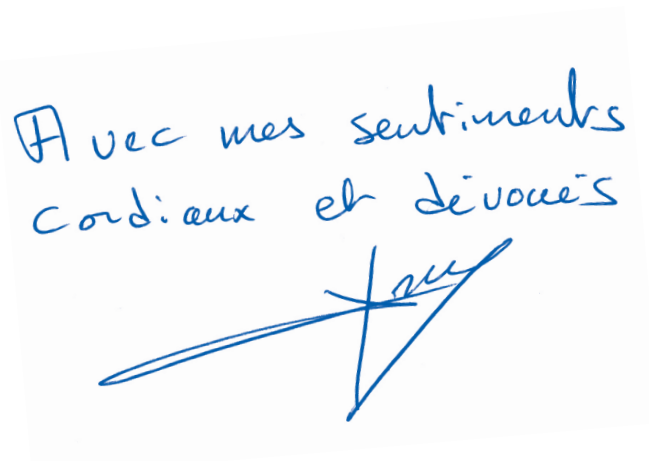 Avec mes sentiments
cordiaux et dévoués